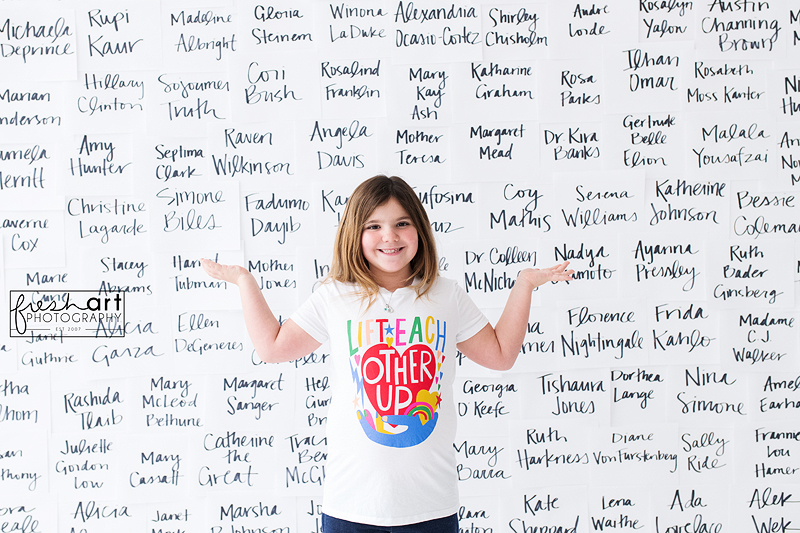 Michaela Deprince
Rupi Kaur
Madeline Albright
Gloria Steinem
Winona LaDuke
Alexandria Ocasio-Cortez
Shirley Chisholm
Audre Lorde
Rosalyn Yalow
Austin Channing Brown
Marian Anderson
Hillary Clinton
Sojourner Truth
Cori Bush
Rosalind Franklin
Mary Kay Ash
Katharine Graham
Rosa Parks
Ilhan Omar
Rosabeth Moss Kanter
Pamela Merritt
Amy Hunter
Septima Clark
Raven Wilkinson
Angela Davis
Mother Teresa
Margaret Mead
Dr Kira Banks
Gertrude Belle Elion
Malala Yousafzai
Laverne Cox
Christine Lagarde
Simone Biles
Fadumo Dayib
Coy Mathis
Serena Williams
Katherine Johnson
Bessie Coleman
Marie Curie
Stacey Abrams
Harriet Tubman
Mother Jones
Dr Colleen McNicho
Nadya Okamoto
Ayanna Pressley
Ruth Bader Ginsberg
freshart
PHOTOGRAPHY
EST 2007
Janet Guthrie
Alicia Garza
Ellen DeGeneres
LIFT EACH
OTHER
UP
Florence Nightingale
Frida Kahlo
Madame C.J. Walker
Rashida Tlaib
Mary McLeod Bethune
Margaret Sanger
Georgia O'Keefe
Tishaura Jones
Dorthea Lange
Nina Simone
Juliette Gordon Low
Mary Cassatt
Catherine the Great
Mary Barra
Ruth Harkness
Diane Von Furstenberg
Sally Ride
Frannie Lou Hamer
Alicia
Janet
Marsha P. Johnson
Kate Sheppard
Lena Waithe
Ada Lovelace
Alek Wek